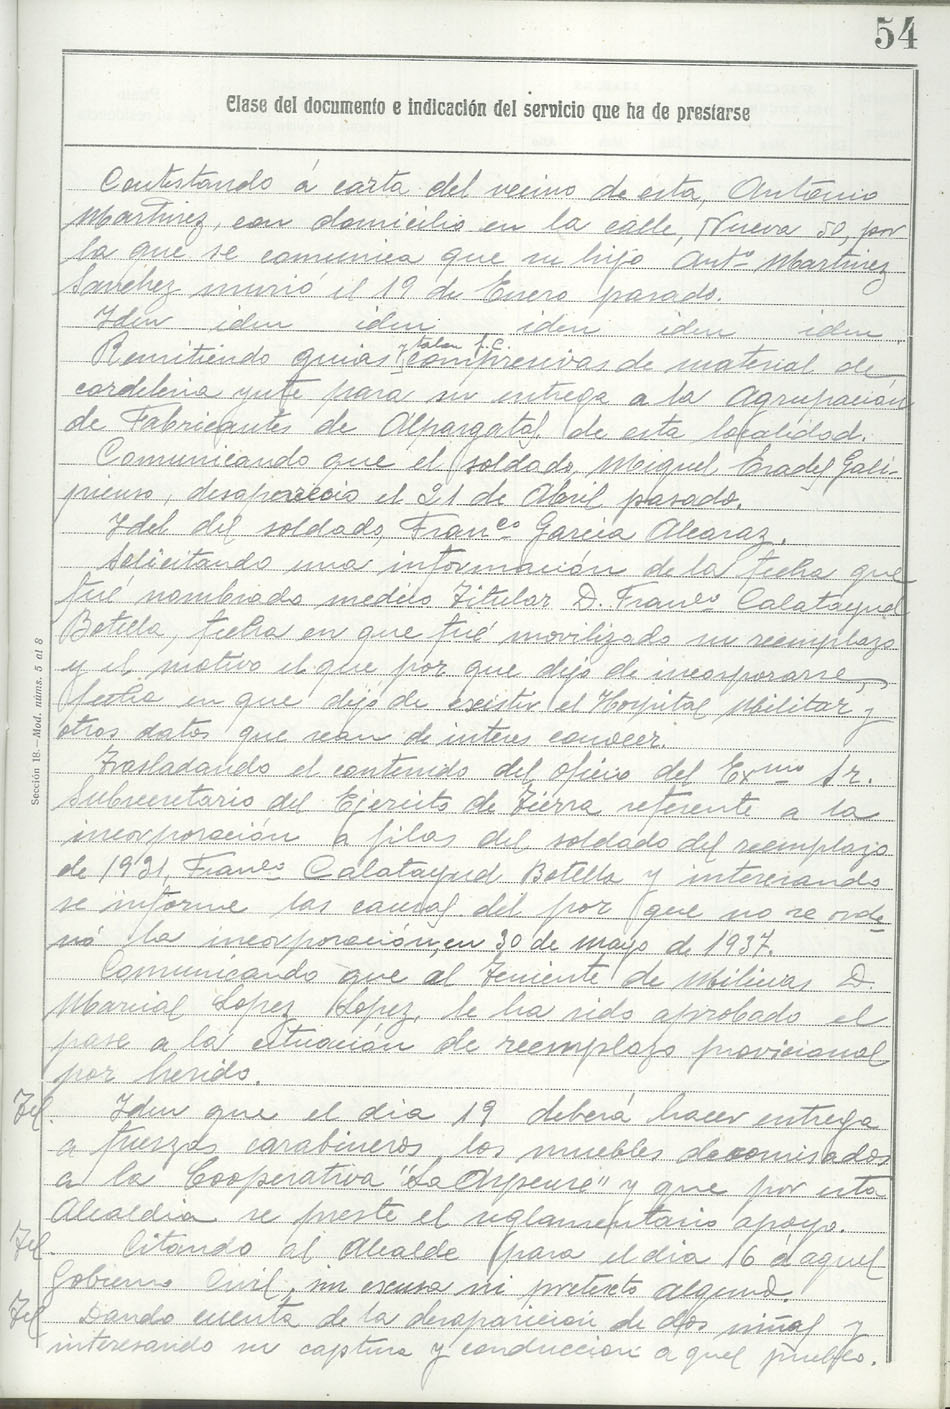 54
Clase del documento e indicación del servicio que ha de prestarse
Contestando á carta del vecino de esta, Antonio
Martinez, con domicilio en la calle, Nueva 50, por
la que se comunica que su hijo Antº Martinez
Sanchez murió el 19 de Enero pasado.
Iden iden iden iden iden iden
Remitiendo guias y talon f.c. compresivas de material de
cordeleria yute para su entrega a la Agrupación
de Fabricantes de Alpargatas de esta localidad.
Comunicando que el soldado, Miguel Gali-
pienso, desaparecio el 21 de Abril pasado.
Idel del soldado, Franco Garcia Alcaraz.
Solicitando una información de la fecha que
fué nombrado medico Titular D. Franco Calatayud
Botella, fecha en que fué movilizado su reemplazo
y el motivo el que por que dejo de incorporarse,
fecha en que dejó de existir el Hospital Militar y
otros datos que sean de interes conocer.
Trasladando el contenido del oficio del Exmo Sr.
Subsecretario del Ejercito de Tierra referente a la
incorporación a filas del soldado del reemplazo
de 1921, Franco Calatayud Botella y interesando
se informe las causas del por que no se orde
nó la incorporación, en 30 de mayo de 1937.
Comunicando que al Teniente de Milicias D.
Marcial Lopez Lopez, le ha sido aprobado el
pase a la situación de reemplazo provicional
por herido.
Tel. Iden que el dia 19 deberá hacer entrega
a fuerzas carabineros, los muebles decomisados
a la Cooperativa "La Aspense" y que por esta
Alcaldia se preste el reglamentario apoyo.
Tel. Citando al Alcalde para el dia 16 á aquel
Gobierno Civil, sin excusa ni pretexto alguno.
Tel Dando cuenta de la desaparicion de dos niñas y
interesando su captura y conduccion a quel pueblo.
Sección 18.—Mod. núms. 5 al 8